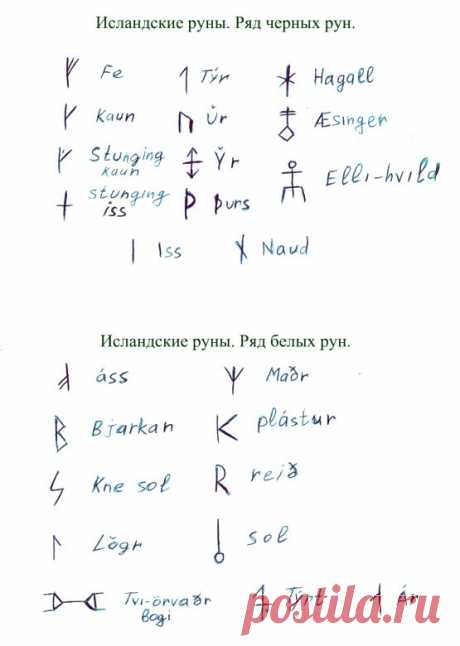 Исландские руны. Ряд черных рун.
Fe Týr Hagall
Kaun Ŭr Æsinger
Stunging kaun Ўr Elli-hvild
stunging iss Þurs
Iss Naud
Исландские руны. Ряд белых рун.
áss Maðr
Bjarkan plástur
Kne sol reið
Lŏgr sol
Tvi-örvaðr bogi Týrt ár
postila.ru